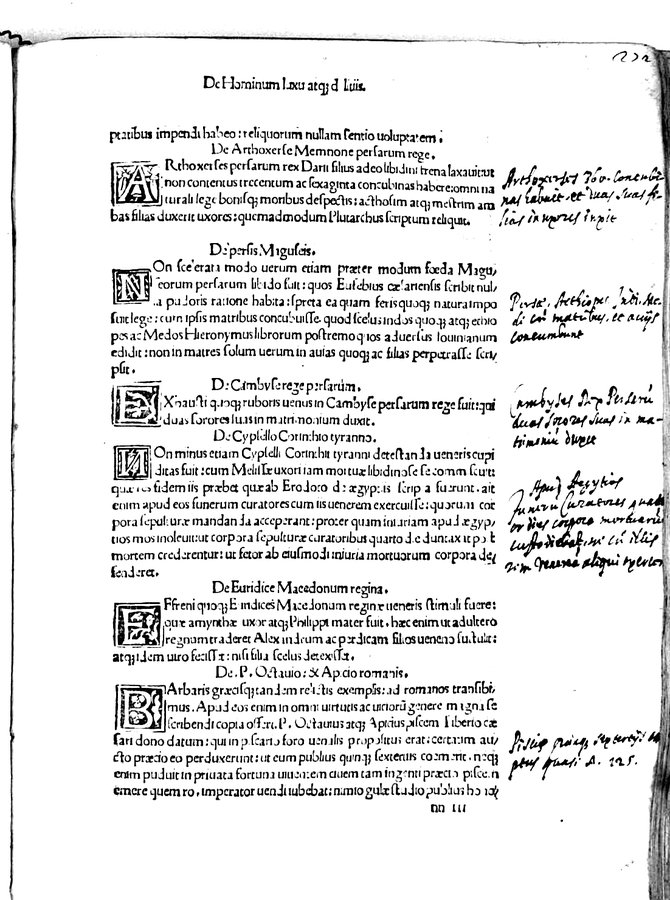 De Hominum Luxu atq; d liuis.
ptatibus impendi habeo: reliquorum nullam sentio uoluptatem.
De Arthoxerse Memnone persarum rege.
ARthoxerses persarum rex Darii filius adeo libidini frena laxauit ut
non contentus trecentum ac sexaginta concubinas habere: omni na
turali lege bonisq; moribus despectis: acthosim atq; mestrim am
bas filias duxerit uxores: quemadmodum Plutarchus scriptum reliquit.
De persis Maguseis.
NOn scelerata modo uerum etiam præter modum fœda Magu
seorum persarum libido fuit: quos Eusebius cæsariensis scribit nul
la pudoris ratione habita: spreta ea quam feris quoq; natura impo
suit lege: cum ipsis matribus concubuisse. quod scelus indos quoq; atq; ethio
pes ac Medos Hieronymus librorum postremo quos aduersus Iouinianum
edidit: non in matres solum uerum in auias quoq; ac filias perpetrasse scri
psit.
De Cambyse rege persarum.
EXhausti quoq; ruboris uenus in Cambyse persarum rege fuit: qui
duas sorores suas in matrimonium duxit.
De Cypsello Corinthio tyranno.
NOn minus etiam Cypselli Corinthii tyranni detestanda ueneris cupi
ditas fuit: cum Melissæ uxori iam mortuæ libidinose se commiscuerit
fidem iis præbet quæ ab Erodoto de ægyptiis scripta fuerunt. ait
enim apud eos funerum curatores cum iis uenerem exercuisse: quorum cor
pora sepulturæ mandanda acceperant: propter quam iniuriam apud ægyp
tios mos inoleuit: ut corpora sepulturæ curatoribus quarto die
mortem crederentur: ut fetor ab eiusmodi iniuria mortuorum corpora de
fenderet.
De Euridice Macedonum regina.
EFfreni quoq; Euridices Macedonum reginæ ueneris stimuli fuere:
quæ amynthæ uxor atq; Philippi mater fuit. hæc enim ut adultero
regnum traderet Alexandrum ac perdicam filios ueneno sustulit:
atq; idem uiro fecisset: nisi filia scelus detexisset.
De. P. Octauio: & Apicio romanis.
BArbaris græcisq; tandem relictis exemplis: ad romanos transibi
mus. Apud eos enim in omni uirtutis ac uitiorum genere magna se
scribendi copia offert. P. Octauius atq; Apicius piscem Tiberio cæ
sari dono datum: qui in piscario foro uenalis propositus erat: certatim au
cto præcio eo perduxerunt: ut eum publius quinq; sextertiis coemerit. neq;
enim puduit in priuata fortuna uiuentem ciuem tam ingenti præcio piscem
emere quem ro. imperator uendi iubebat: nimio gulæ studio publius
nn iii
232
Arthoxerses 360. concubi
nas habuit. et duas suas fi-
lias in uxores
Persæ, Aethiopes Indi. Me-
di cū matribus, et auijs
concumbunt
Cambyses Rex Persarū
duas sorores suas in ma-
trimoniū duxit
Apud Aegytios
funerū Curatores quat
or dies corpora mortuorū